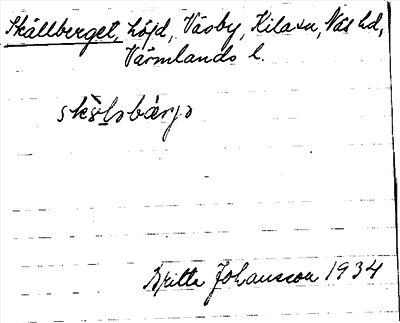 Skållberget, höjd, Väsby, Kila sn, Näs hd,
Värmlands l.
skǒ̀lsbärjə
Britta Johansson 1934